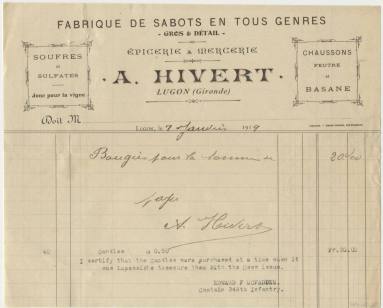 FABRIQUE DE SABOTS EN TOUS GENRES
- GROS & DÉTAIL -
ÉPICERIE & MERCERIE
SOUFRES
et
SULFATES
Jonc pour la vigne
· A. HIVERT ·
LUGON (Gironde)
CHAUSSONS
FEUTRE
et
BASANE
Doit M
Lugon, le 7 Janvier 1919
Bougies pour la somme de 20f00
A. Hivert
40 Candles @ 0.50 Fr.20.00
I certify that the candles were purchased at a time when it
was impossible to secure them
EDWARD F MCFADDEN
Captain 346th Infantry.